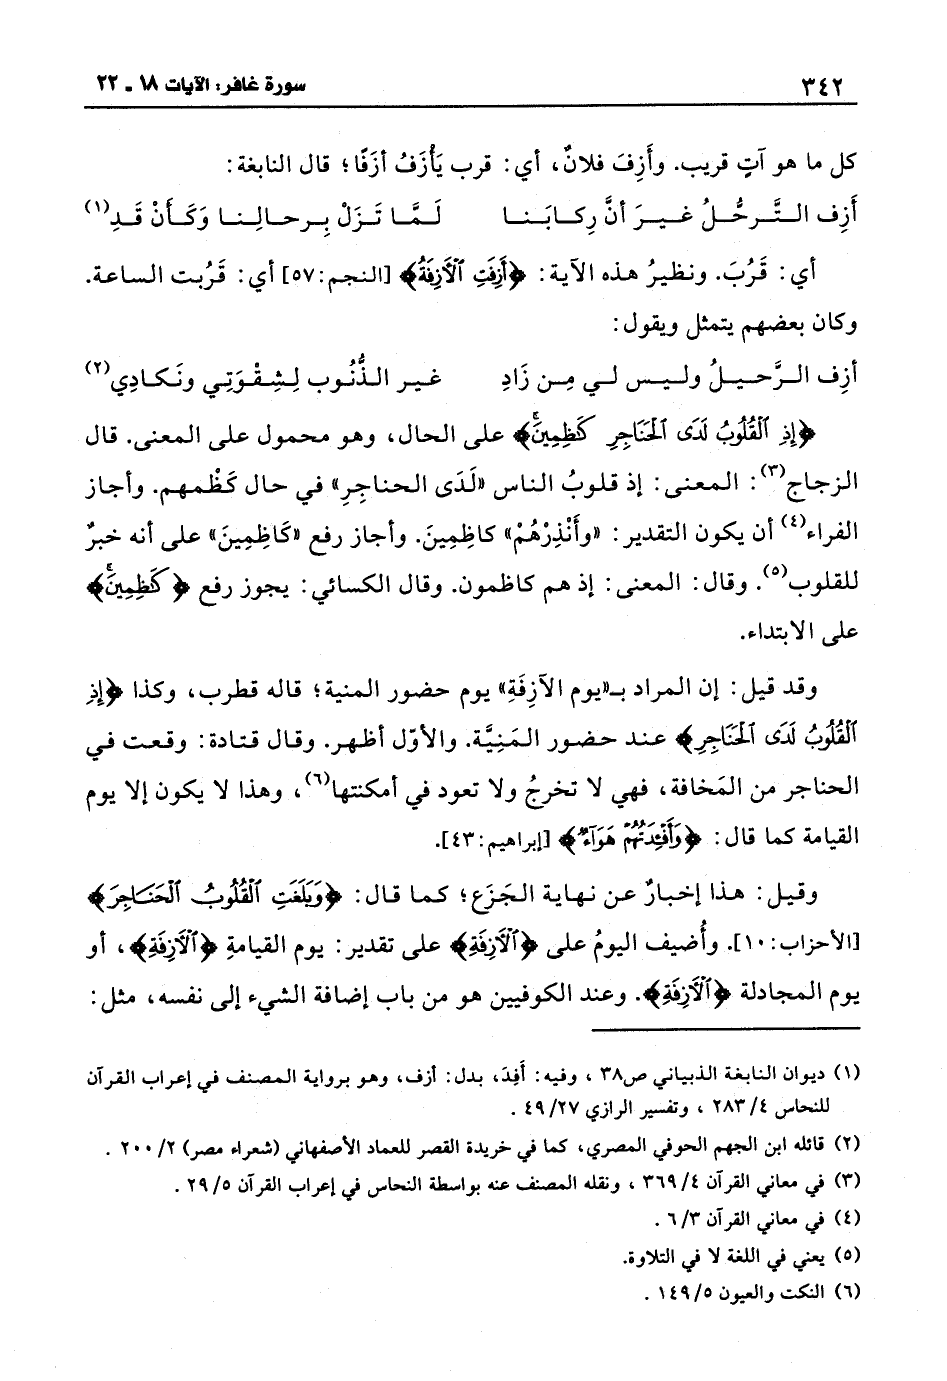 ٣٤٢ سورة غافر: الآيات ١٨ ـ ٢٢
كل ما هو آتٍ قريب. وأَزِفَ فلانٌ، أي: قرب يَأْزَفُ أزَفًا؛ قال النابغة:
أَزِف التَّرحُّلُ غيرَ أنَّ رِكابَنا لَمَّا تَزَلْ بِرحالِنا وَكَأَنْ قَدِ(١)
أي: قَرُبَ. ونظيرُ هذه الآية: ﴿أَزِفَتِ ٱلْأَزِفَةُ﴾ [النجم:٥٧] أي: قَرُبت الساعة.
وكان بعضهم يتمثل ويقول:
أزِف الرَّحيلُ وليس لي مِن زَادِ غير الذُّنُوب لِشِقْوَتِي ونَكادِي(٢)
﴿إِذِ ٱلْقُلُوبُ لَدَى ٱلْحَنَاجِرِ كَٰظِمِينَۚ﴾ على الحال، وهو محمول على المعنى. قال
الزجاج(٣): المعنى: إذ قلوبُ الناس «لَدَى الحناجِرِ» في حال كَظْمهم. وأجاز
الفراء(٤) أن يكون التقدير: «وأَنْذِرْهُمْ» كاظِمِينَ. وأجاز رفع «كَاظِمِينَ» على أنه خبرٌ
للقلوب(٥). وقال: المعنى: إذ هم كاظمون. وقال الكسائي: يجوز رفع ﴿كَٰظِمِينَۚ﴾
على الابتداء.
وقد قيل: إن المراد بـ«يوم الآزِفَةِ» يوم حضور المنية؛ قاله قطرب، وكذا ﴿إِذِ
ٱلْقُلُوبُ لَدَى ٱلْحَنَاجِرِ﴾ عند حضور المَنِيَّة. والأوّل أظهر. وقال قتادة: وقعت في
الحناجر من المَخافة، فهي لا تخرجُ ولا تعود في أمكنتها(٦)، وهذا لا يكون إلا يوم
القيامة كما قال: ﴿وَأَفْـِٔدَتُهُمْ هَوَآءٌ﴾ [إبراهيم:٤٣].
وقيل: هذا إخبارٌ عن نهاية الجَزَع؛ كما قال: ﴿وَبَلَغَتِ ٱلْقُلُوبُ ٱلْحَنَاجِرَ﴾
[الأحزاب:١٠]. وأُضيف اليومُ على ﴿ٱلْأَزِفَةِ﴾ على تقدير: يوم القيامةِ ﴿ٱلْأَزِفَةِ﴾، أو
يوم المجادلة ﴿ٱلْأَزِفَةِ﴾. وعند الكوفيين هو من باب إضافة الشيء إلى نفسه، مثل:
(١) ديوان النابغة الذبياني ص٣٨ ، وفيه: أَفِدَ، بدل: أزف، وهو برواية المصنف في إعراب القرآن
للنحاس ٢٨٣/٤ ، وتفسير الرازي ٤٩/٢٧ .
(٢) قائله ابن الجهم الحوفي المصري، كما في خريدة القصر للعماد الأصفهاني (شعراء مصر) ٢٠٠/٢ .
(٣) في معاني القرآن ٣٦٩/٤ ، ونقله المصنف عنه بواسطة النحاس في إعراب القرآن ٢٩/٥ .
(٤) في معاني القرآن ٦/٣ .
(٥) يعني في اللغة لا في التلاوة.
(٦) النكت والعيون ١٤٩/٥ .